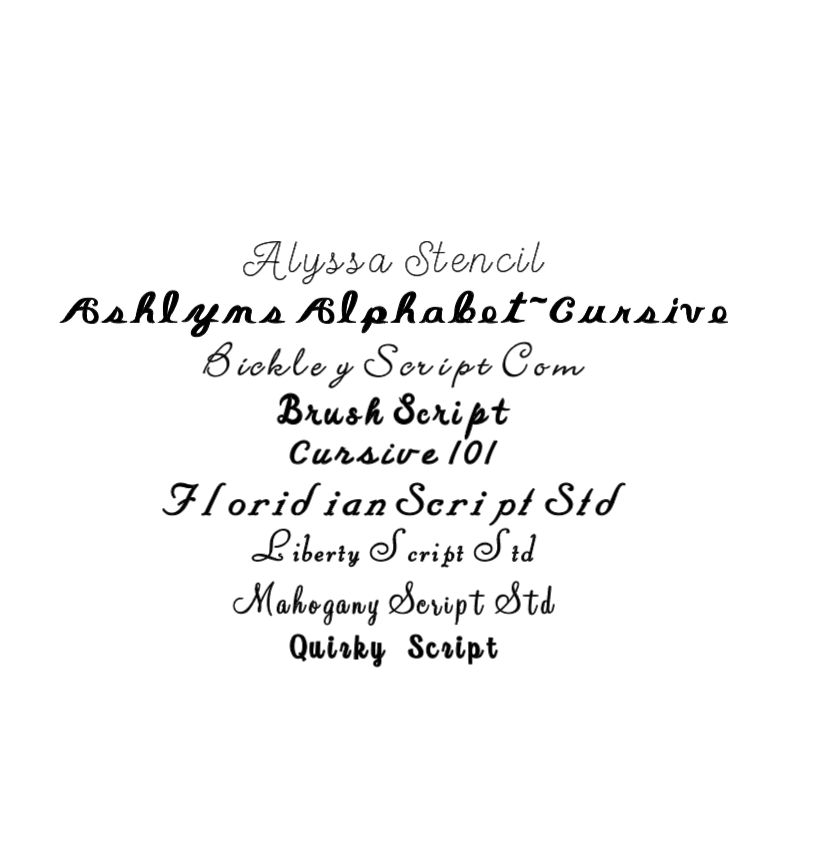 Alyssa Stencil
Ashlyns Alphabet~Cursive
Bickley Script Com
Brush Script
Cursive 101
Floridian Script Std
Liberty Script Std
Mahogany Script Std
Quirky Script